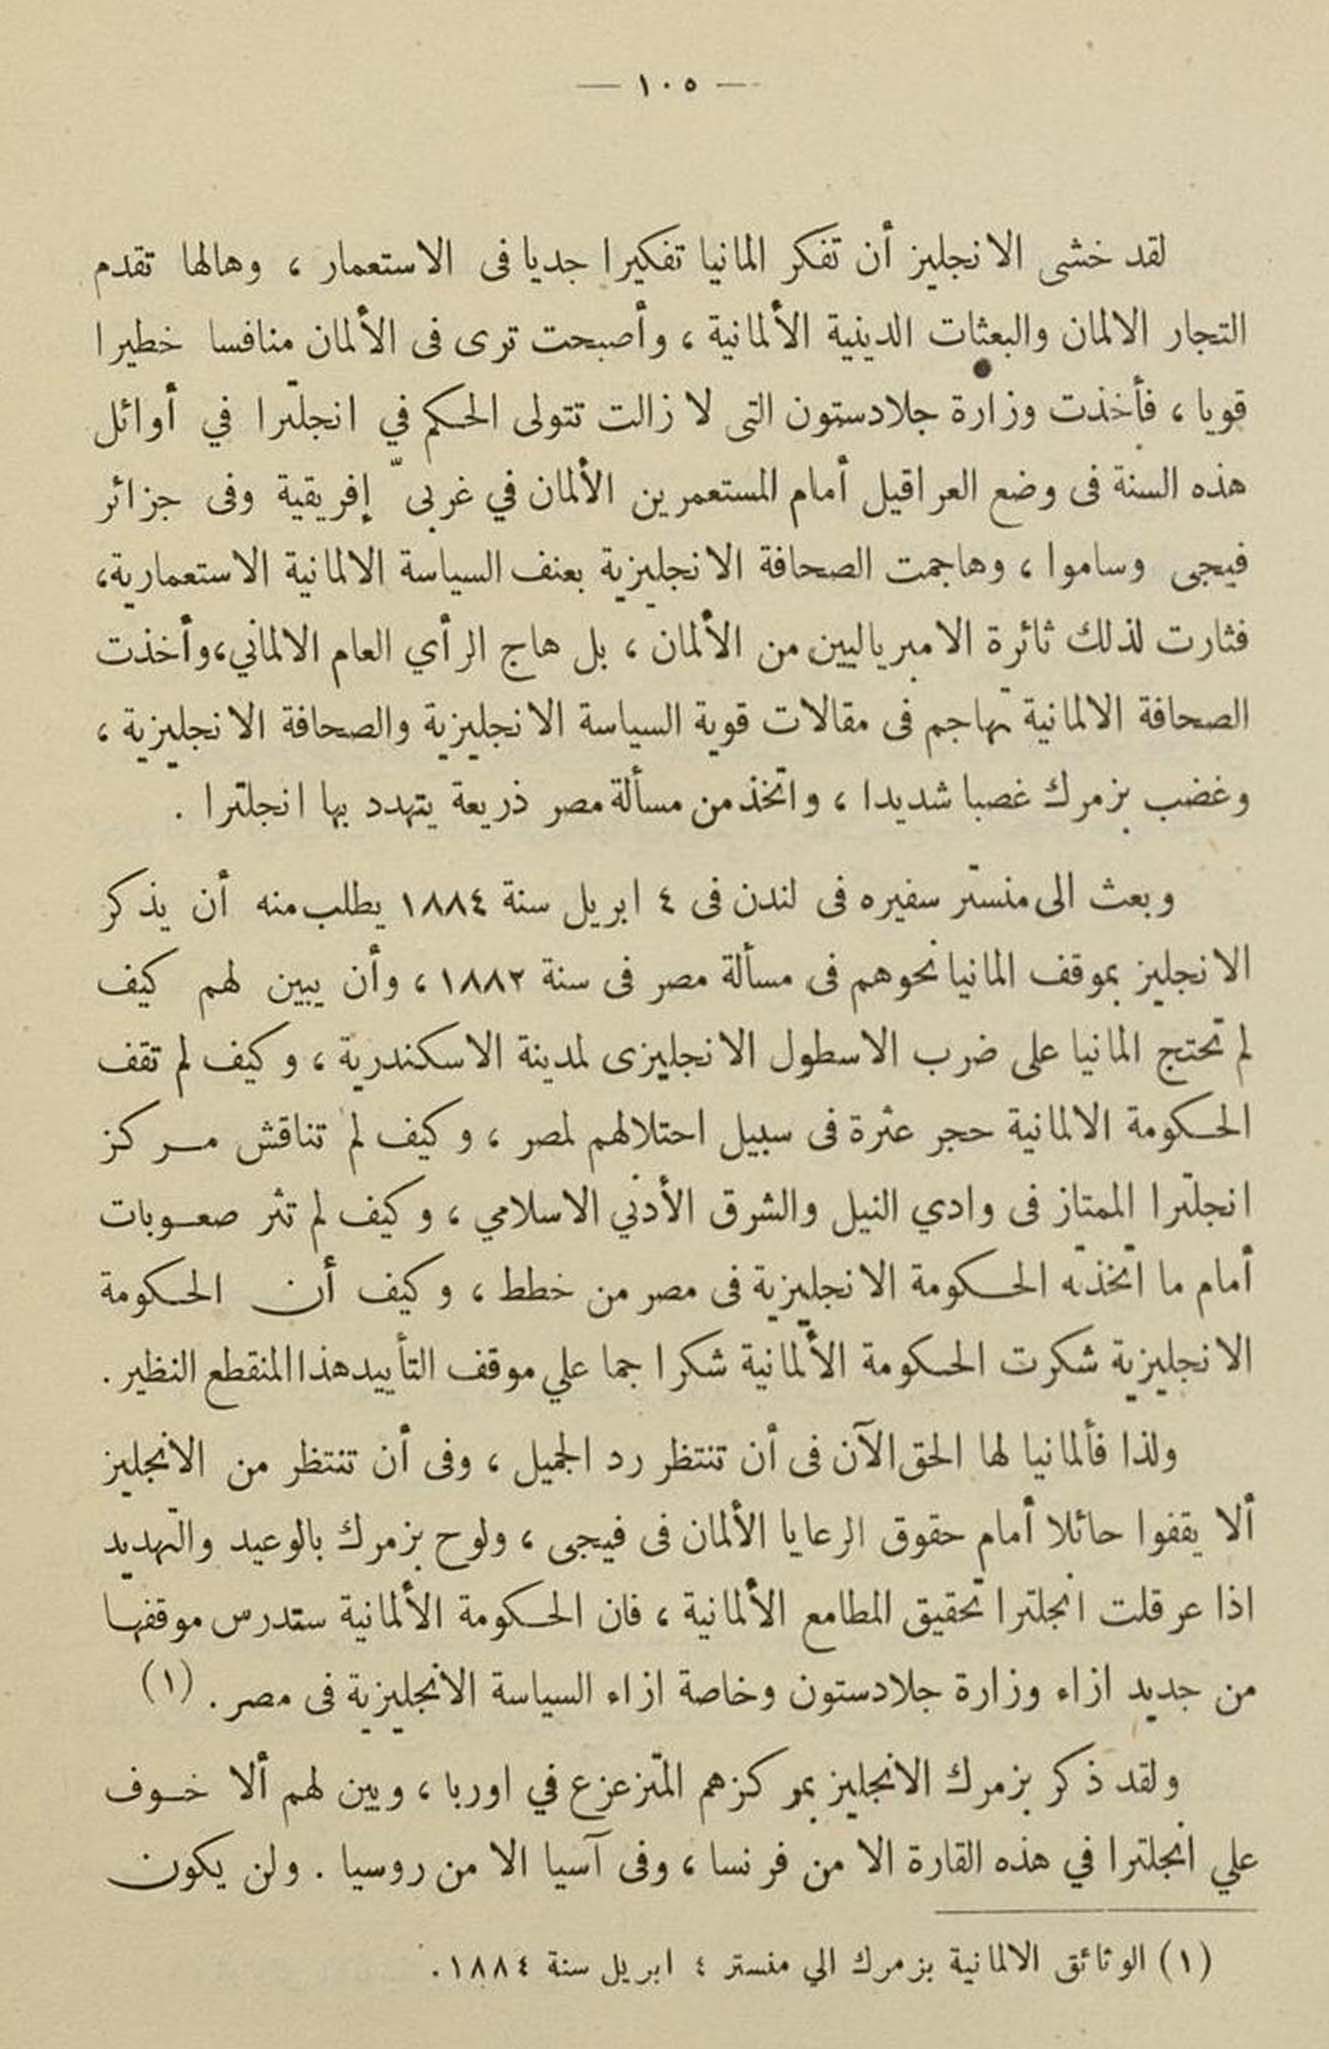 — ١٠٥ —
لقد خشى الانجليز أن تفكر المانيا تفكيرا جديا فى الاستعمار ، وهالها تقدم
التجار الالمان والبعثات الدينية الألمانية ، وأصبحت ترى فى الألمان منافسا خطيرا
قويا ، فأخذت وزارة جلادستون التى لا زالت تتولى الحكم في انجلترا في أوائل
هذه السنة فى وضع العراقيل أمام المستعمرين الألمان في غربىّ إفريقية وفى جزائر
فيجى وساموا ، وهاجمت الصحافة الانجليزية بعنف السياسة الالمانية الاستعمارية،
فثارت لذلك ثائرة الامبرياليين من الألمان ، بل هاج الرأي العام الالماني،وأخذت
الصحافة الالمانية تهاجم فى مقالات قوية السياسة الانجليزية والصحافة الانجليزية ،
وغضب بزمرك غصبا شديدا ، واتخذ من مسألة مصر ذريعة يتهدد بها انجلترا .
وبعث الى منستر سفيره فى لندن فى ٤ ابريل سنة ١٨٨٤ يطلب منه أن يذكر
الانجليز بموقف المانيا نحوهم فى مسألة مصر فى سنة ١٨٨٢ ، وأن يبين لهم كيف
لم تحتج المانيا على ضرب الاسطول الانجليزى لمدينة الاسكندرية ، وكيف لم تقف
الحكومة الالمانية حجر عثرة فى سبيل احتلالهم لمصر ، وكيف لم تناقش مركز
انجلترا الممتاز فى وادي النيل والشرق الأدني الاسلامي ، وكيف لم تثر صعوبات
أمام ما اتخذته الحكومة الانجليزية فى مصر من خطط ، وكيف أن الحكومة
الانجليزية شكرت الحكومة الألمانية شكرا جما علي موقف التأييد هذا المنقطع النظير .
ولذا فألمانيا لها الحق الآن فى أن تنتظر رد الجميل ، وفى أن تنتظر من الانجليز
ألا يقفوا حائلا أمام حقوق الرعايا الألمان فى فيجى ، ولوح بزمرك بالوعيد والتهديد
اذا عرقلت انجلترا تحقيق المطامع الألمانية ، فان الحكومة الألمانية ستدرس موقفها
من جديد ازاء وزارة جلادستون وخاصة ازاء السياسة الانجليزية فى مصر . (١)
ولقد ذكر بزمرك الانجليز بمركزهم المتزعزع في اوربا ، وبين لهم ألا خوف
علي انجلترا في هذه القارة الا من فرنسا ، وفى آسيا الا من روسيا . ولن يكون
(١) الوثائق الالمانية بزمرك الي منستر ٤ ابريل سنة ١٨٨٤.